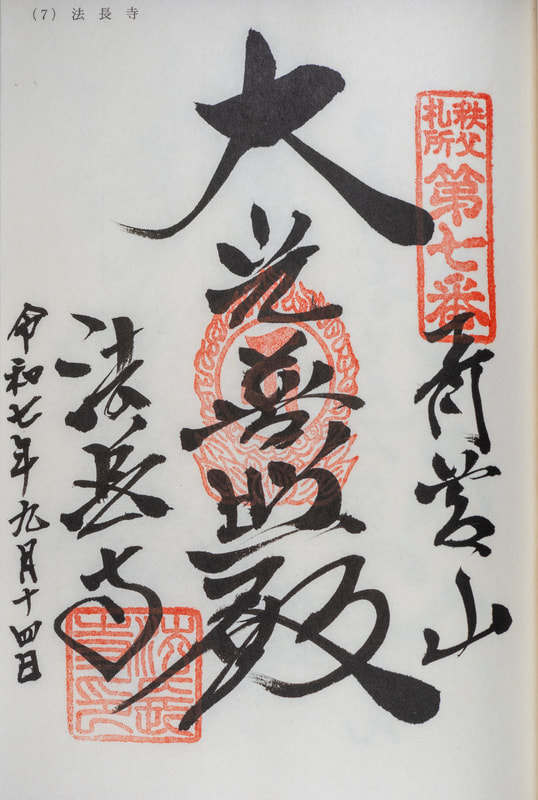 (7) 法長寺
秩父札所
第七番
青苔山
大光普照殿
法長寺
法長寺印
令和七年九月十四日